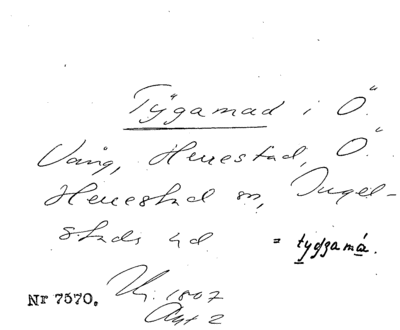 Tygamad i Ö.
Vång, Herrestad, Ö.
Herrestad sn, Ingel-
stads hd = tydgamá.
Nr 7570. 1807
Akt 2